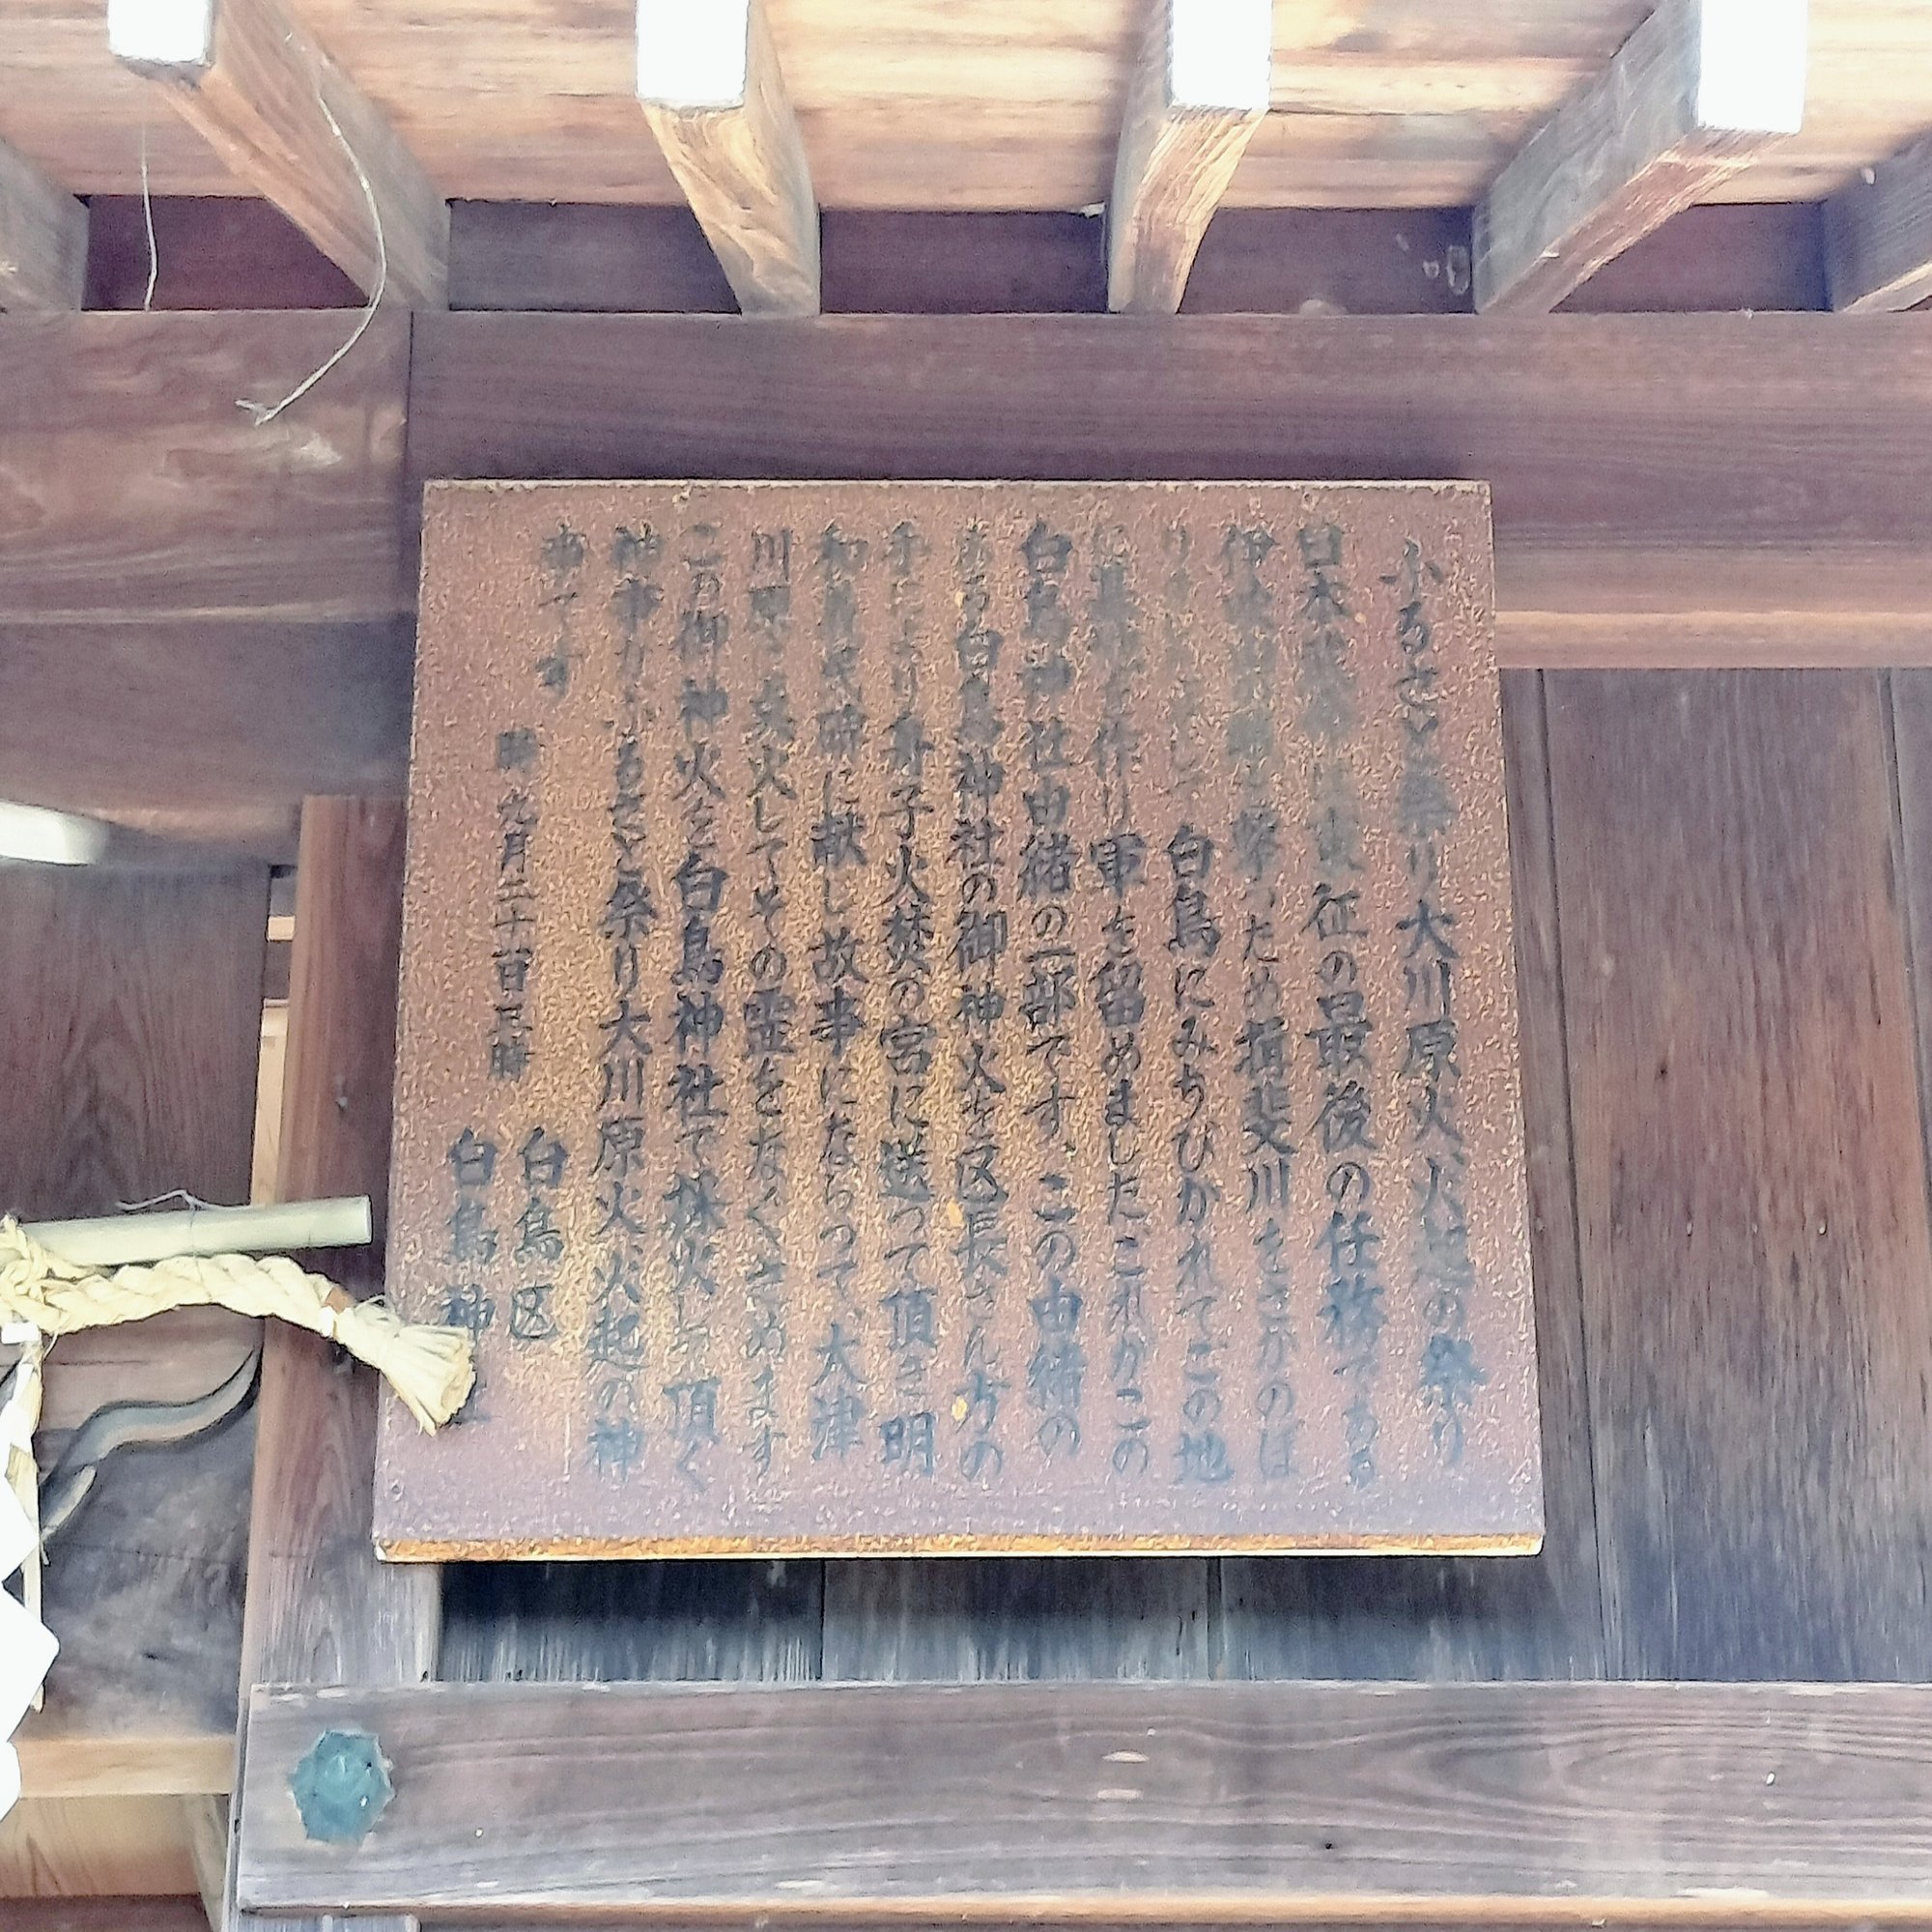 ふるさと祭り大川原火、火起の祭り
日本武尊は東征の最後の任務である
伊吹山の神を撃つため揖斐川をさかのぼ
白鳥にみちびかれてこの地
に基地を作り軍を留めましたこれがこの
白鳥神社由緒の一部です、この由緒の
ある白鳥神社の御神火を区長さん方の
手により舞子火焚の宮に送って頂き明
に献じ故事にならって、大津
川原で点火してその霊をなぐさめます
この御神火を白鳥神社で採火して頂く
神事がふるさと祭り大川原火、火起の神
事です
時 九月二十一日三時
白鳥区
白鳥神社